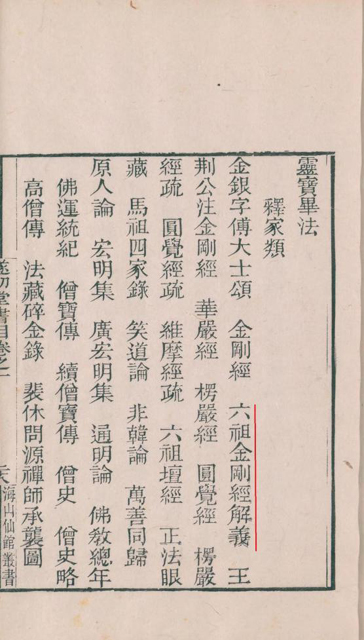 靈寶畢法
釋家類
金銀字傅大士頌 金剛經 六祖金剛經解義 王
荆公注金剛經 華嚴經 楞嚴經 圓覺經 楞嚴
經疏 圓覺經疏 維摩經疏 六祖壇經 正法眼
藏 馬祖四家錄 笑道論 非韓論 萬善同歸
原人論 宏明集 廣宏明集 通明論 佛教總年
佛運統紀 僧寶傳 續僧寶傳 僧史 僧史略
高僧傳 法藏碎金錄 裴休問源禪師承襲圖
遂初堂書目卷之一 六 海山仙館叢書